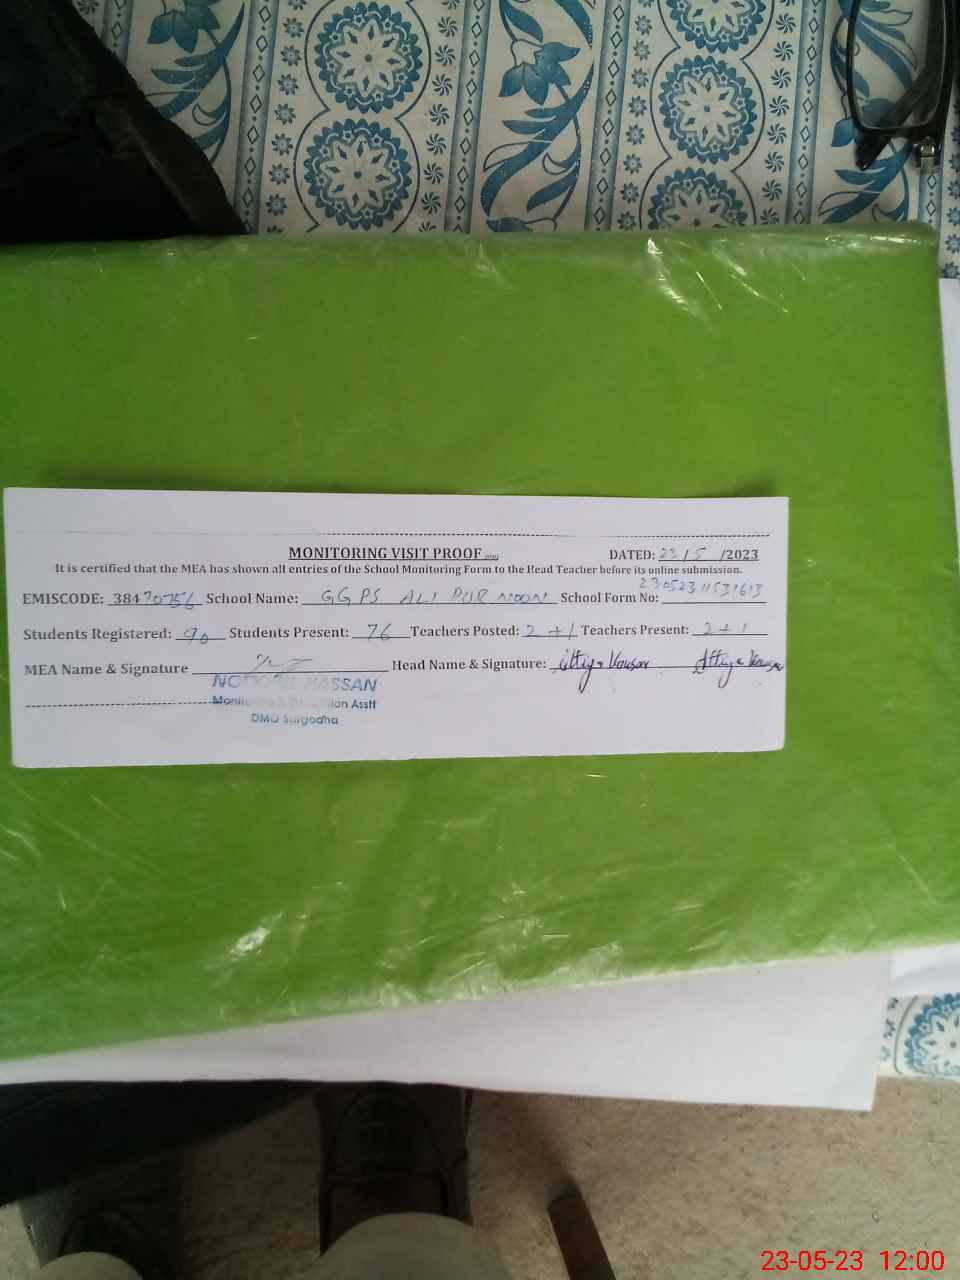 MONITORING VISIT PROOF DATED: 23/5/2023
It is certified that the MEA has shown all entries of the School Monitoring Form to the Head Teacher before its online submission.
EMISCODE: 38470756 School Name: GGPS ALI PUR NOON School Form No: 23052311531613
Students Registered: 90 Students Present: 76 Teachers Posted: 2+1 Teachers Present: 2+1
MEA Name & Signature Head Name & Signature: Attiya Kousar Attiya Kousar
HASSAN
Asstt
DMO Sargodha
23-05-23 12:00